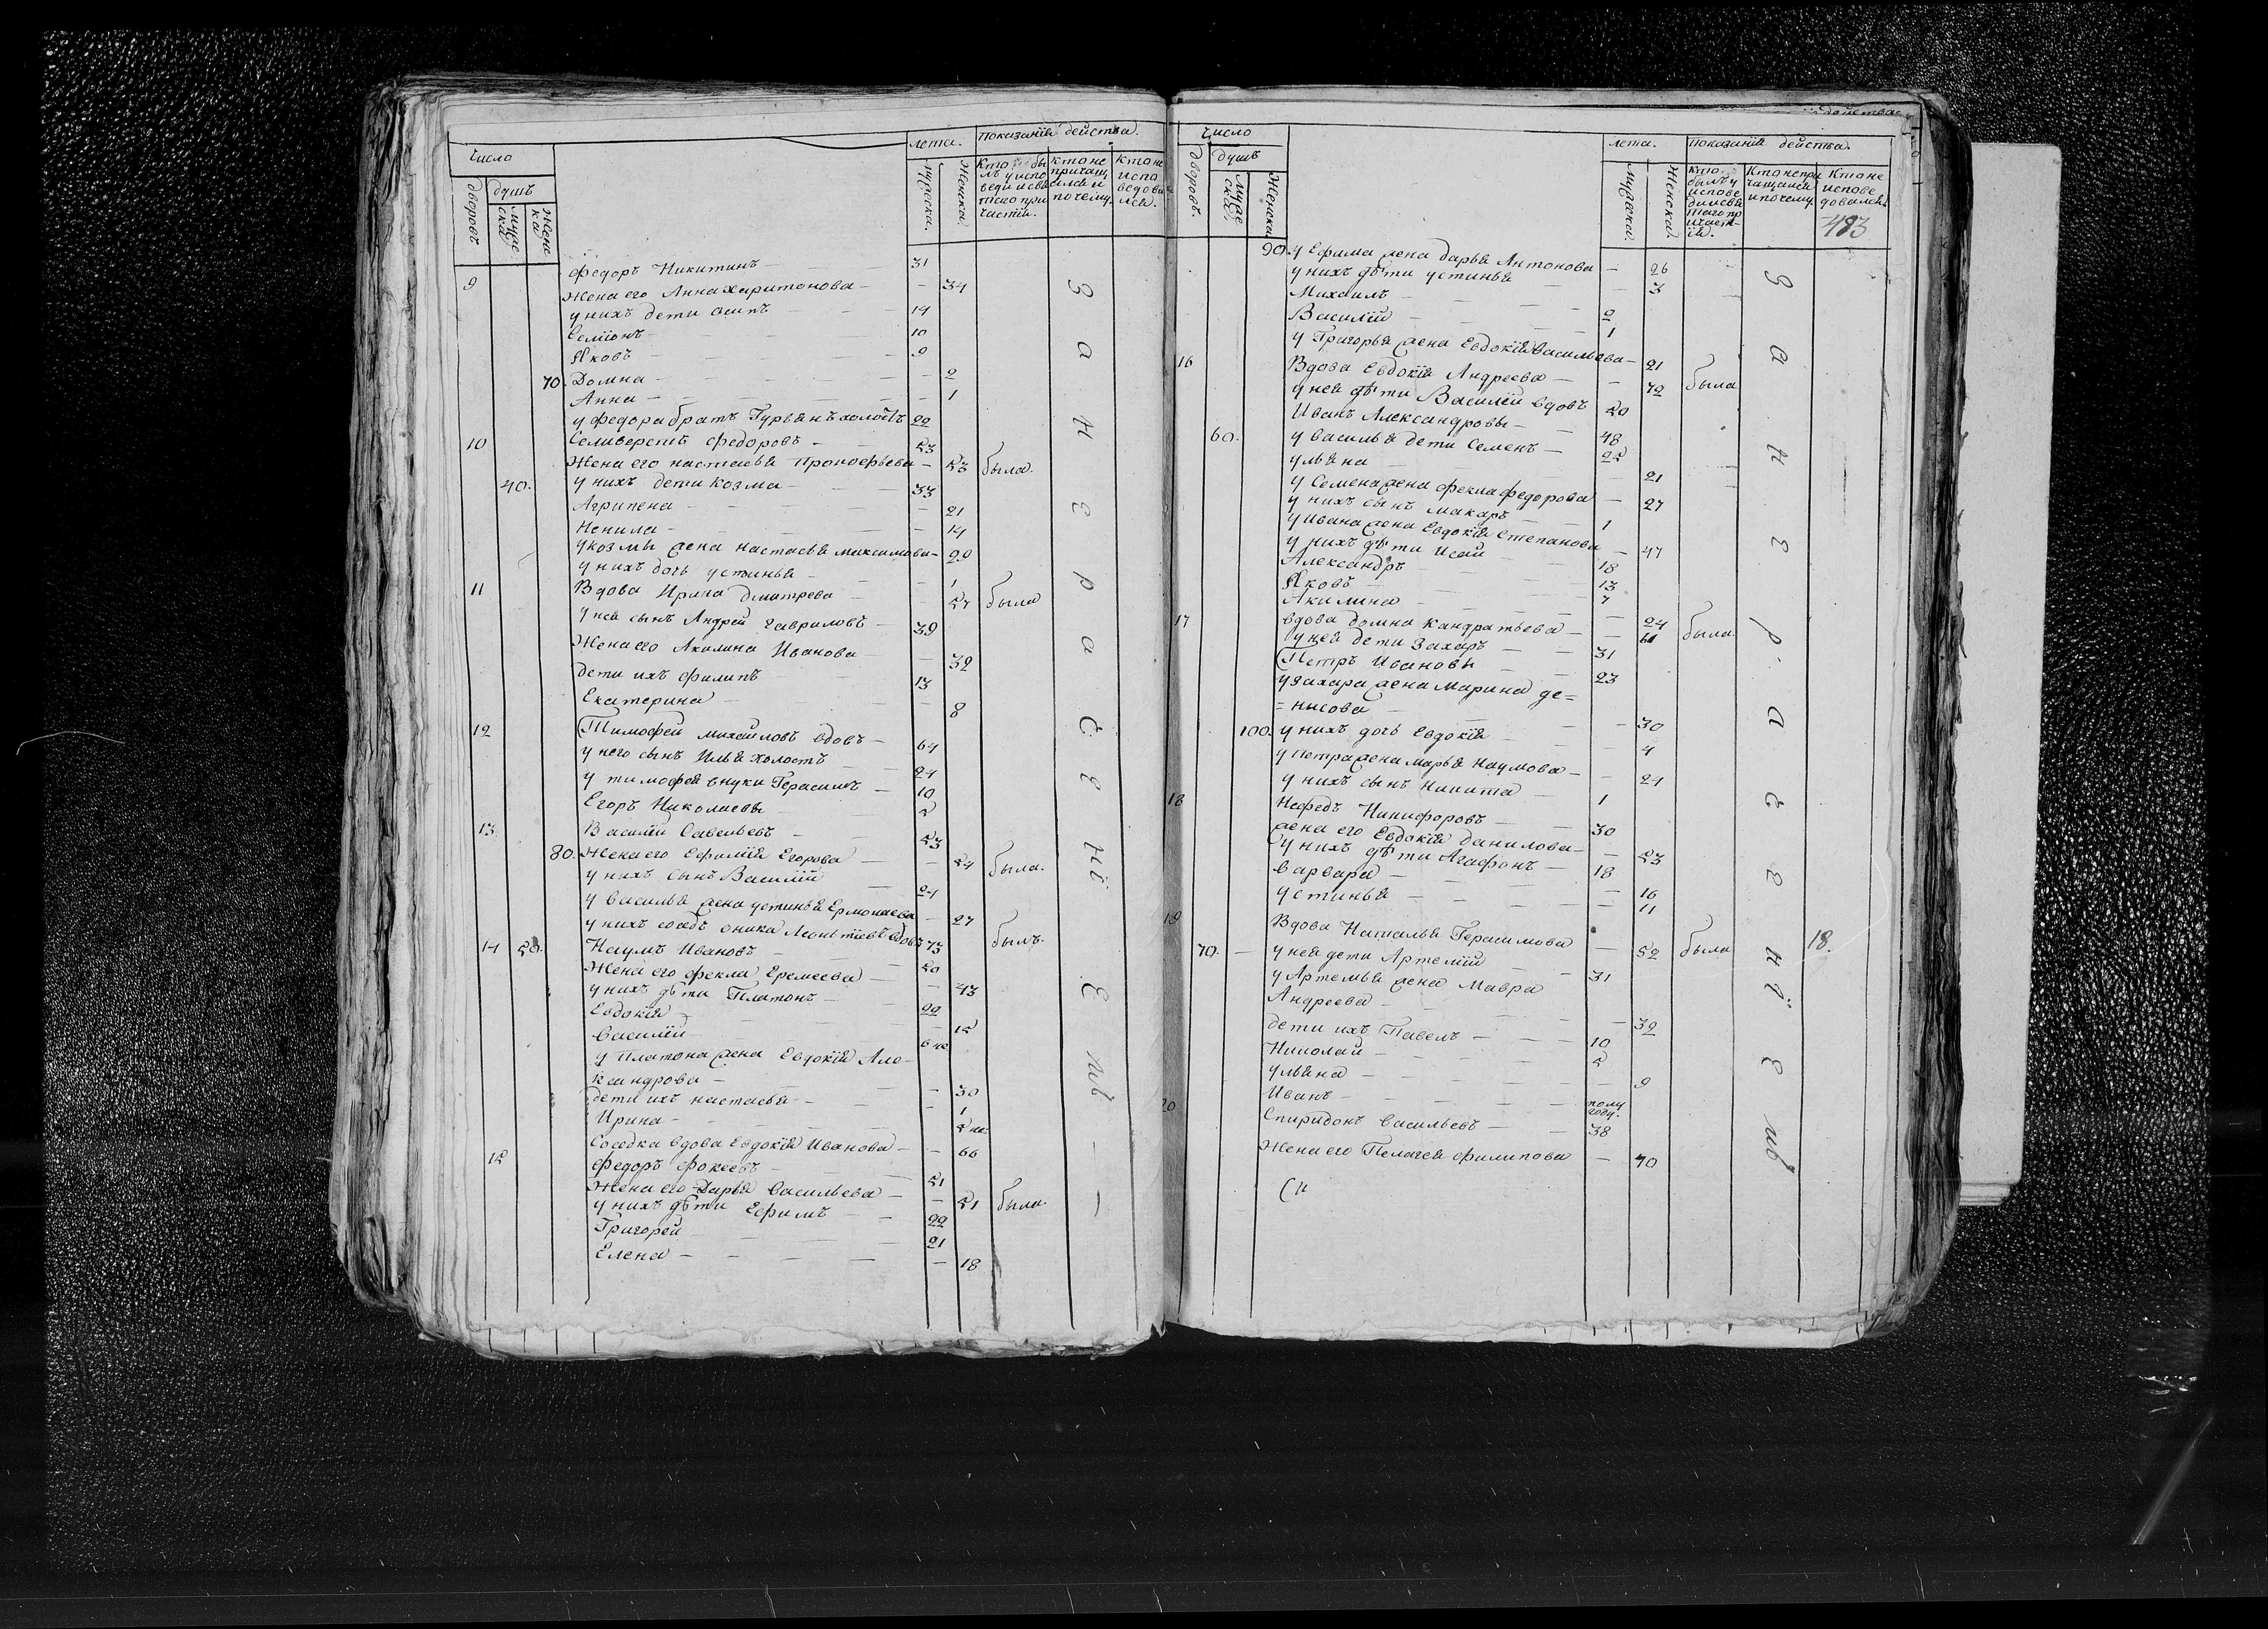 число
лета.
Показанїя действа.
дворовъ
душъ
мужеска
женска
мужеска.
женска.
Кто былъ у исповеди и святаго причастїя.
Кто не причащался и почему.
Кто не исповедовался.
9 Федоръ Никитинъ — 31
Жена его Анна Харитонова — — 34
у нихъ дети Осипъ — — 14
Семіонъ — — 10
Яковъ — — 9
70. Домна — — — 2
Анна — — — 1
у Федора братъ Гурьянъ холостъ 22
10 Селиверстъ Федоровъ — 53
Жена его Настасья Прокофьева — 53 была.
40. у нихъ дети Козма — 33
Агрипена — — 21
Ненила — — 14
у Козмы жена Настасья Максимова — 29
у нихъ дочь Устинья — — 1
11 Вдова Ирина Дмитрева — 57 была
у ней сынъ Андрей Гавриловъ — 39
Жена его Акилина Иванова — 32
дети ихъ Филипъ — 13
Екатерина — — 8
12 Тимофей Михайловъ вдовъ — 64
у него сынъ Илья холостъ — 24
у Тимофея внуки Герасимъ — 10
Егоръ Николаевы 5
13 Василїй Савельевъ — 53
80. Жена его Ефимїя Егорова — — 54 была.
у нихъ сынъ Василїй — 24
у Василья жена Устинья Ермолаева — 27
у нихъ соседъ Оника Леонтїевъ вдовъ 73 былъ.
14 50. Наумъ Ивановъ — 50
Жена его Фекла Еремеева — — 43
у нихъ дѣти Платонъ — 22
Евдокїя — — 15
Василїй — 6 не
у Платона жена Евдокїя Але-
ксандрова — — 30
дети ихъ Настасья — — 1
Ирина — 5 не.
Соседка вдова Евдокїя Иванова — — 66
15 Федоръ Фокеевъ — 51
Жена его Дарья Васильева — — 51 была.
у нихъ дѣти Ефимъ — — 22
Григорей — 21
Елена — — — 18
За нерадѣнїемъ
число
лета.
Показанїя действа.
дворовъ.
душъ
мужеска
женска
мужеска.
женска.
Кто былъ у исповеди и святаго причастїя.
Кто не причащался и почему
Кто не исповедовался.
483
90. у Ефима жена Дарья Антонова — 26
у нихъ дѣти Устинья — — 3
Михаилъ — — 2
Василїй — — 1
у Григорья жена Евдокїя Васильева — 21
16 Вдова Евдокїя Андреева — — 72 была
у ней дѣти Василей вдовъ 50
Иванъ Александровы — 48
60. у Василья дети Семенъ — 25
Ульяна — — 21
у Семена жена Фекла Федорова — 27
у нихъ сынъ Макаръ — — 1
у Ивана жена Евдокїя Степанова — 47
у нихъ дѣти Исай — 18
Александръ — 13
Яковъ — 7
Акилина — — 24
17 вдова Домна Кандратьева — — 61 была
у ней дети Захаръ — — 31
Петръ Ивановы — 23
у Захара жена Марина де=
=нисова — — 30
100. у нихъ дочь Евдокїя — — 4
у Петра жена Марья Наумова — — 24
у нихъ сынъ Никита — 1
18 Нефедъ Никифоровъ — — 30
жена его Евдокїя Данилова — — 53
у нихъ дѣти Агафонъ — 18
Варвара — — 16
Устинья — — — 11
19 Вдова Наталья Герасимова — 52 была 18.
70. — у ней дети Артемїй — — 31
у Артемья жена Мавра
Андреева — — 32
дети ихъ Павелъ — — 10
Николай — — 5
Ульяна — — — 9
Иванъ — — полугоду.
20 Спиридонъ Васильевъ — — 38
Жена его Пелагея Филипова — 40
За нерадѣнїемъ